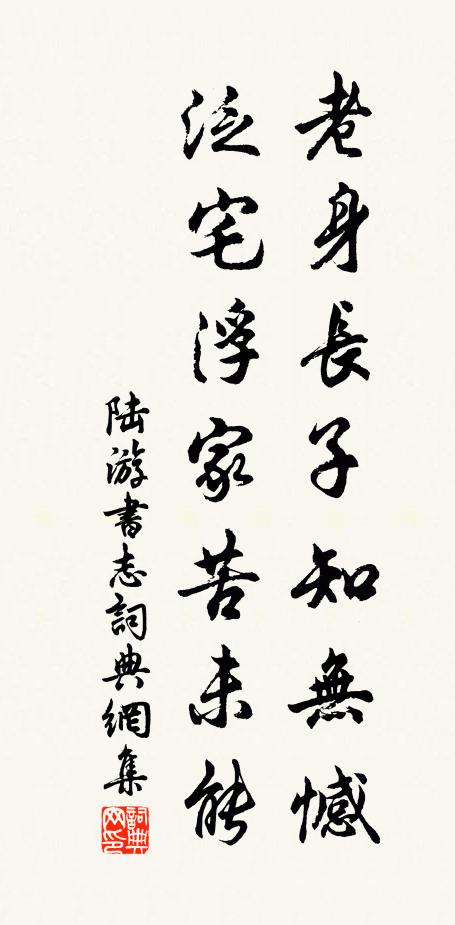 老身長子知無憾
泛宅浮家苦未能
陆游書志詞典網集
詞典网印